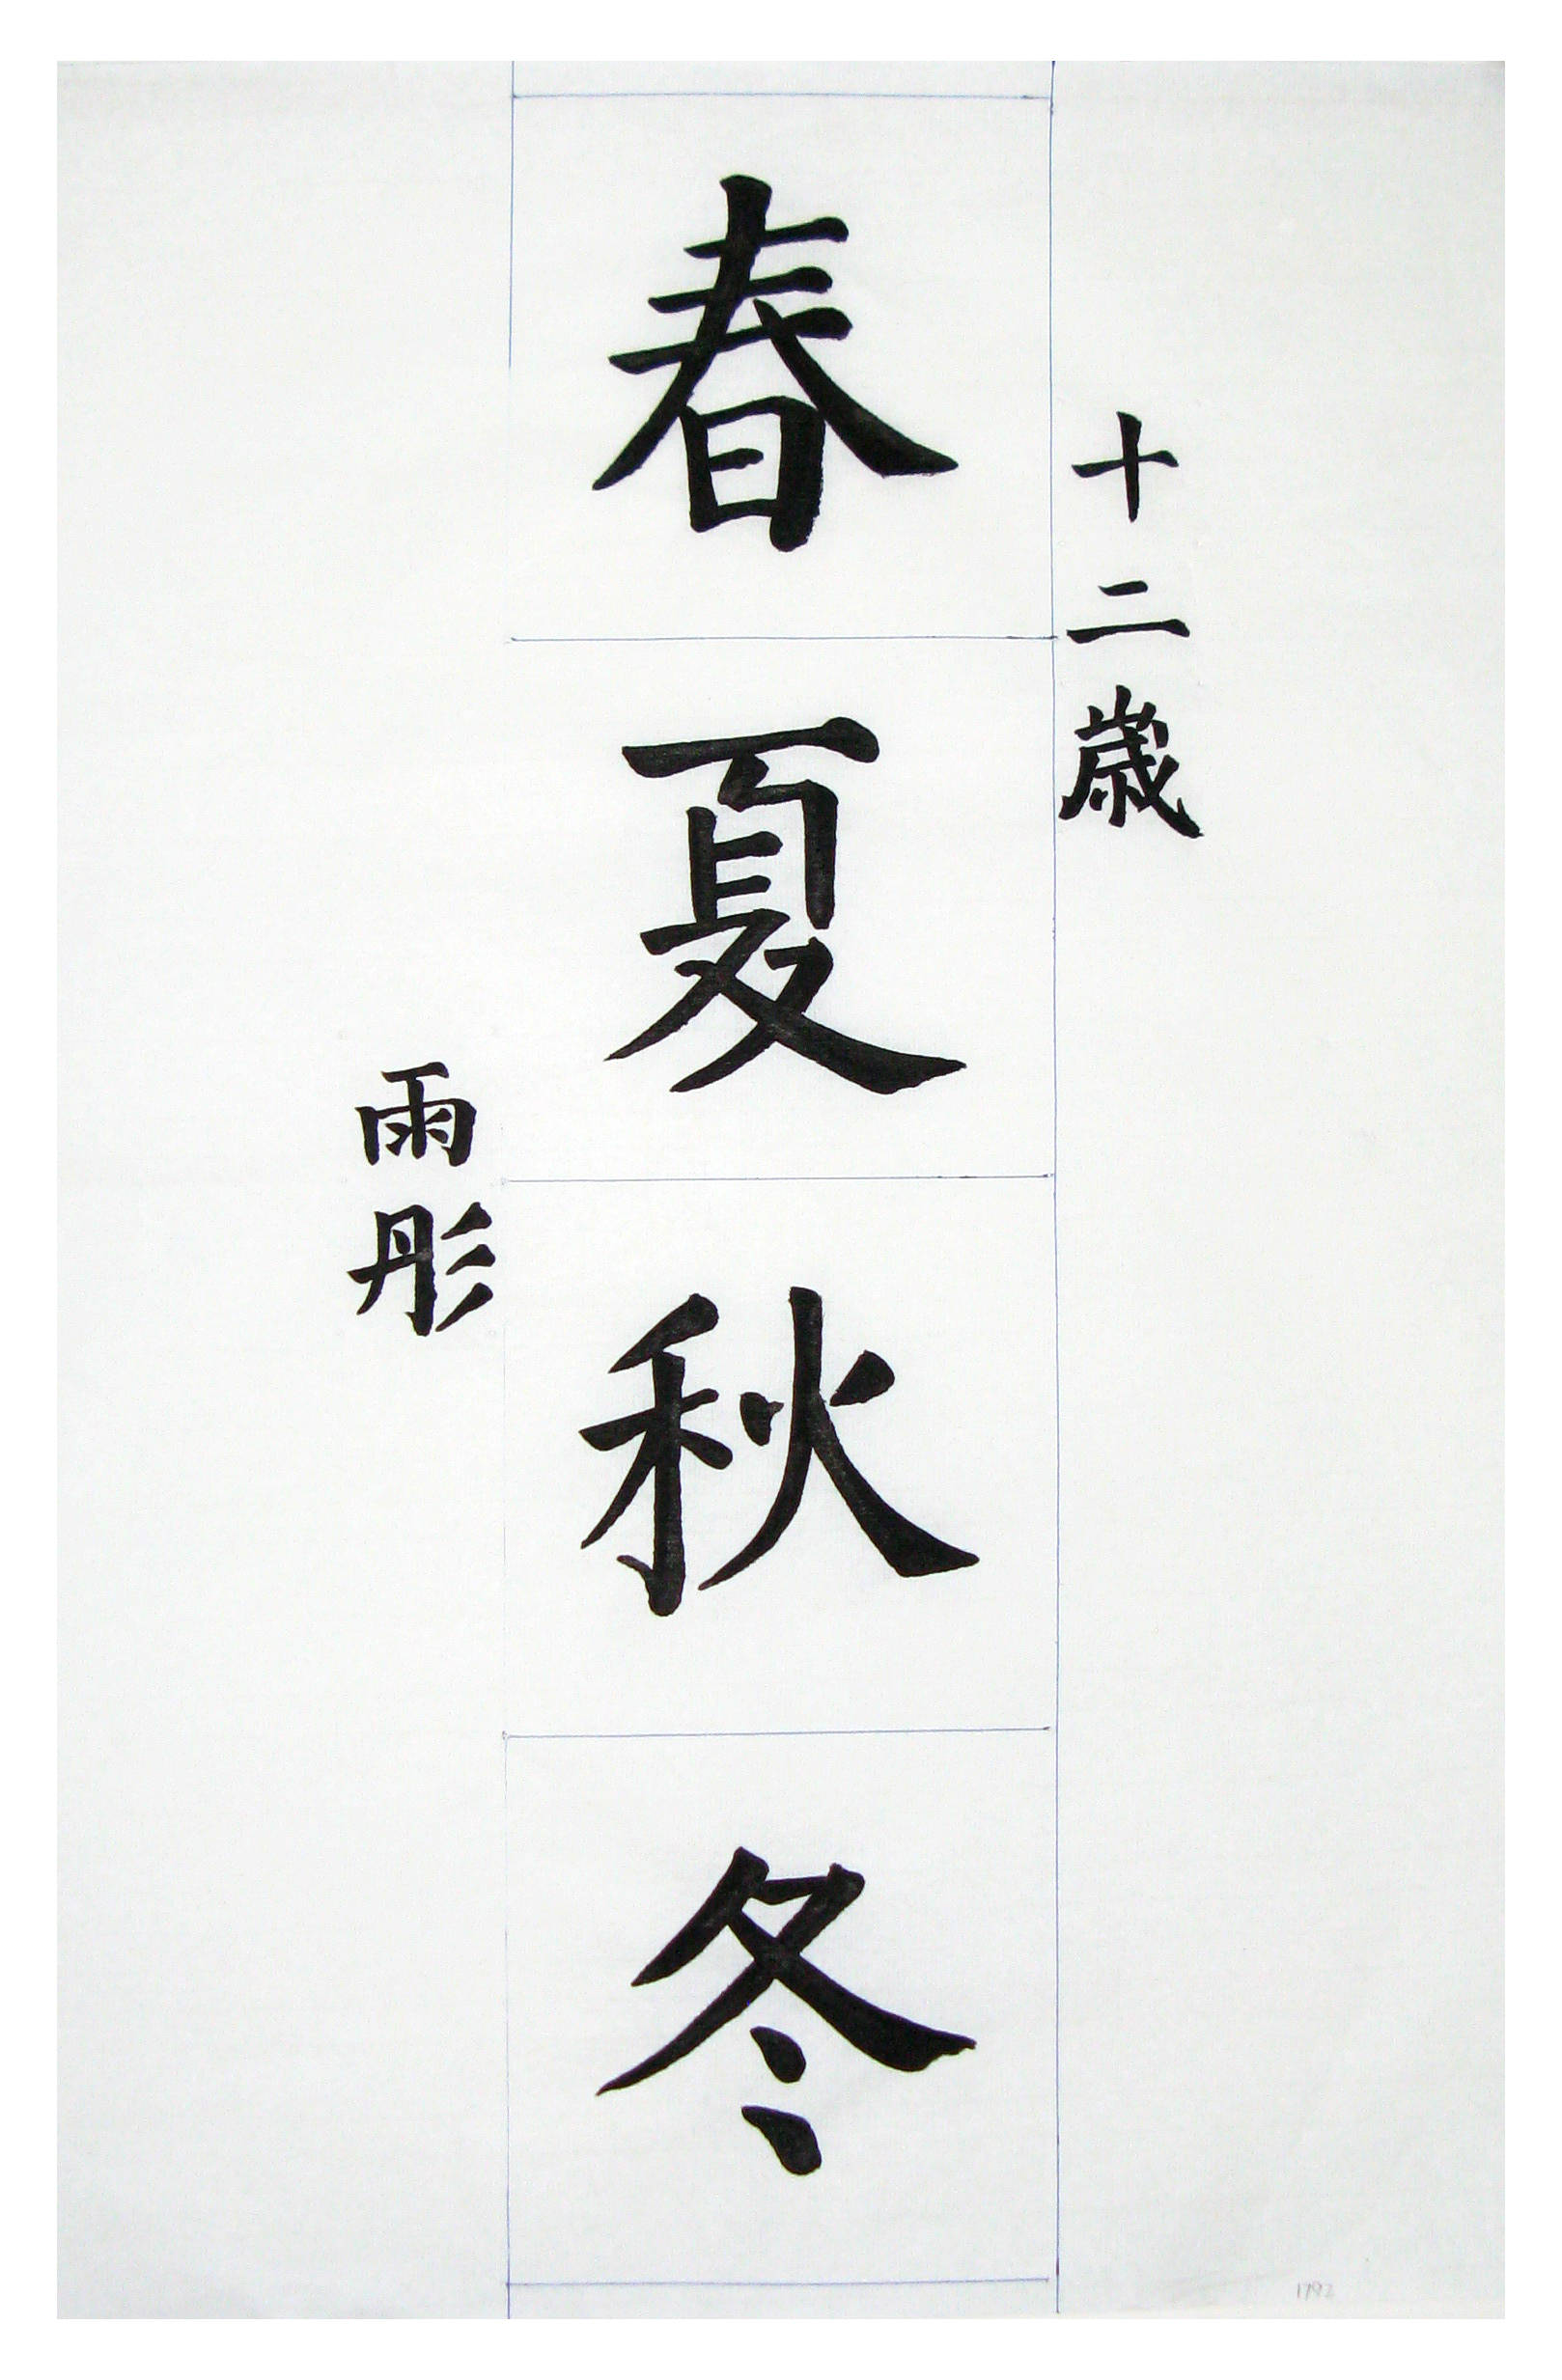 十二歳
春夏秋冬
雨彤